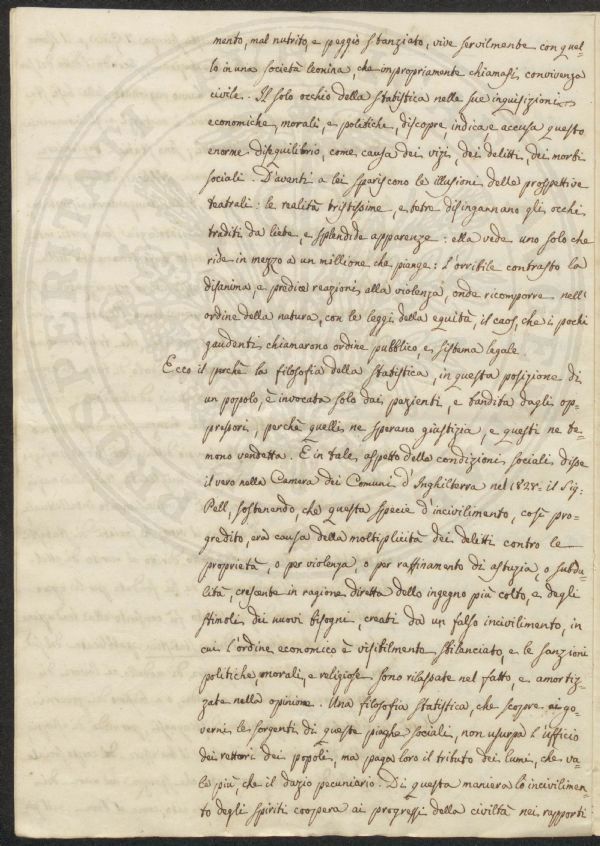 mento, mal nutrito, e peggio stanziato, vive servilmente con quel-
lo in una società leonina, che impropriamente chiamasi convivenza
civile. Il solo occhio della statistica nelle sue inquisizioni
economiche, morali, e politiche, discopre, indica e accusa questo
enorme disequilibrio, come causa dei vizj, dei delitti, dei morbi
sociali. D'aventi a lei spariscono le illusioni delle prospettive
teatrali: le realità tristissime, e tetre disingannano gli occhi
traditi da liete, e splendide apparenze: ella vede uno solo che
ride in mezzo a un millione che piange: l'orribile contrasto la
disanima, e predice reazioni alla violenza, onde ricomporre nell'
ordine della natura, con le leggi della equità, il caos, che i pochi
gaudenti chiamarono ordine pubblico, e sistema legale.
Ecco il perchè la filosofia della statistica, in questa posizione di
un popolo, è invocata solo dai pazienti, e bandita dagli op-
pressori, perchè quelli ne sperano giustizia, e questi ne te-
mono vendetta. È in tale aspetto delle condizioni sociali disse
il vero nella Camera dei Comuni d'Inghilterra nel 1828= il Sig:
Pell, sostenendo, che questa specie d'incivilimento, così pro-
gredito, era causa della moltiplicità dei delitti contro le
proprietà, o per violenza, o per raffinamento di astuzia, o subdo-
lità, crescente in ragione diretta dello ingegno più colto, e degli
stimoli dei nuovi bisogni, creati da un falso incivilimento, in
cui l'ordine economico è visibilmente sbilanciato, e le sanzioni
politiche, morali, e religiose sono rilassate nel fatto, e amortiz-
zate nella opinione. Una filosofia statistica, che scopre ai go-
verni le sorgenti di queste piaghe sociali, non usurpa l'ufficio
dei rettori dei popoli, ma paga loro il tributo dei lumi, che va-
le più che il dazio pecuniario. Di questa maniera lo incivilimen-
to degli spiriti coopera ai progressi della civiltà nei rapporti